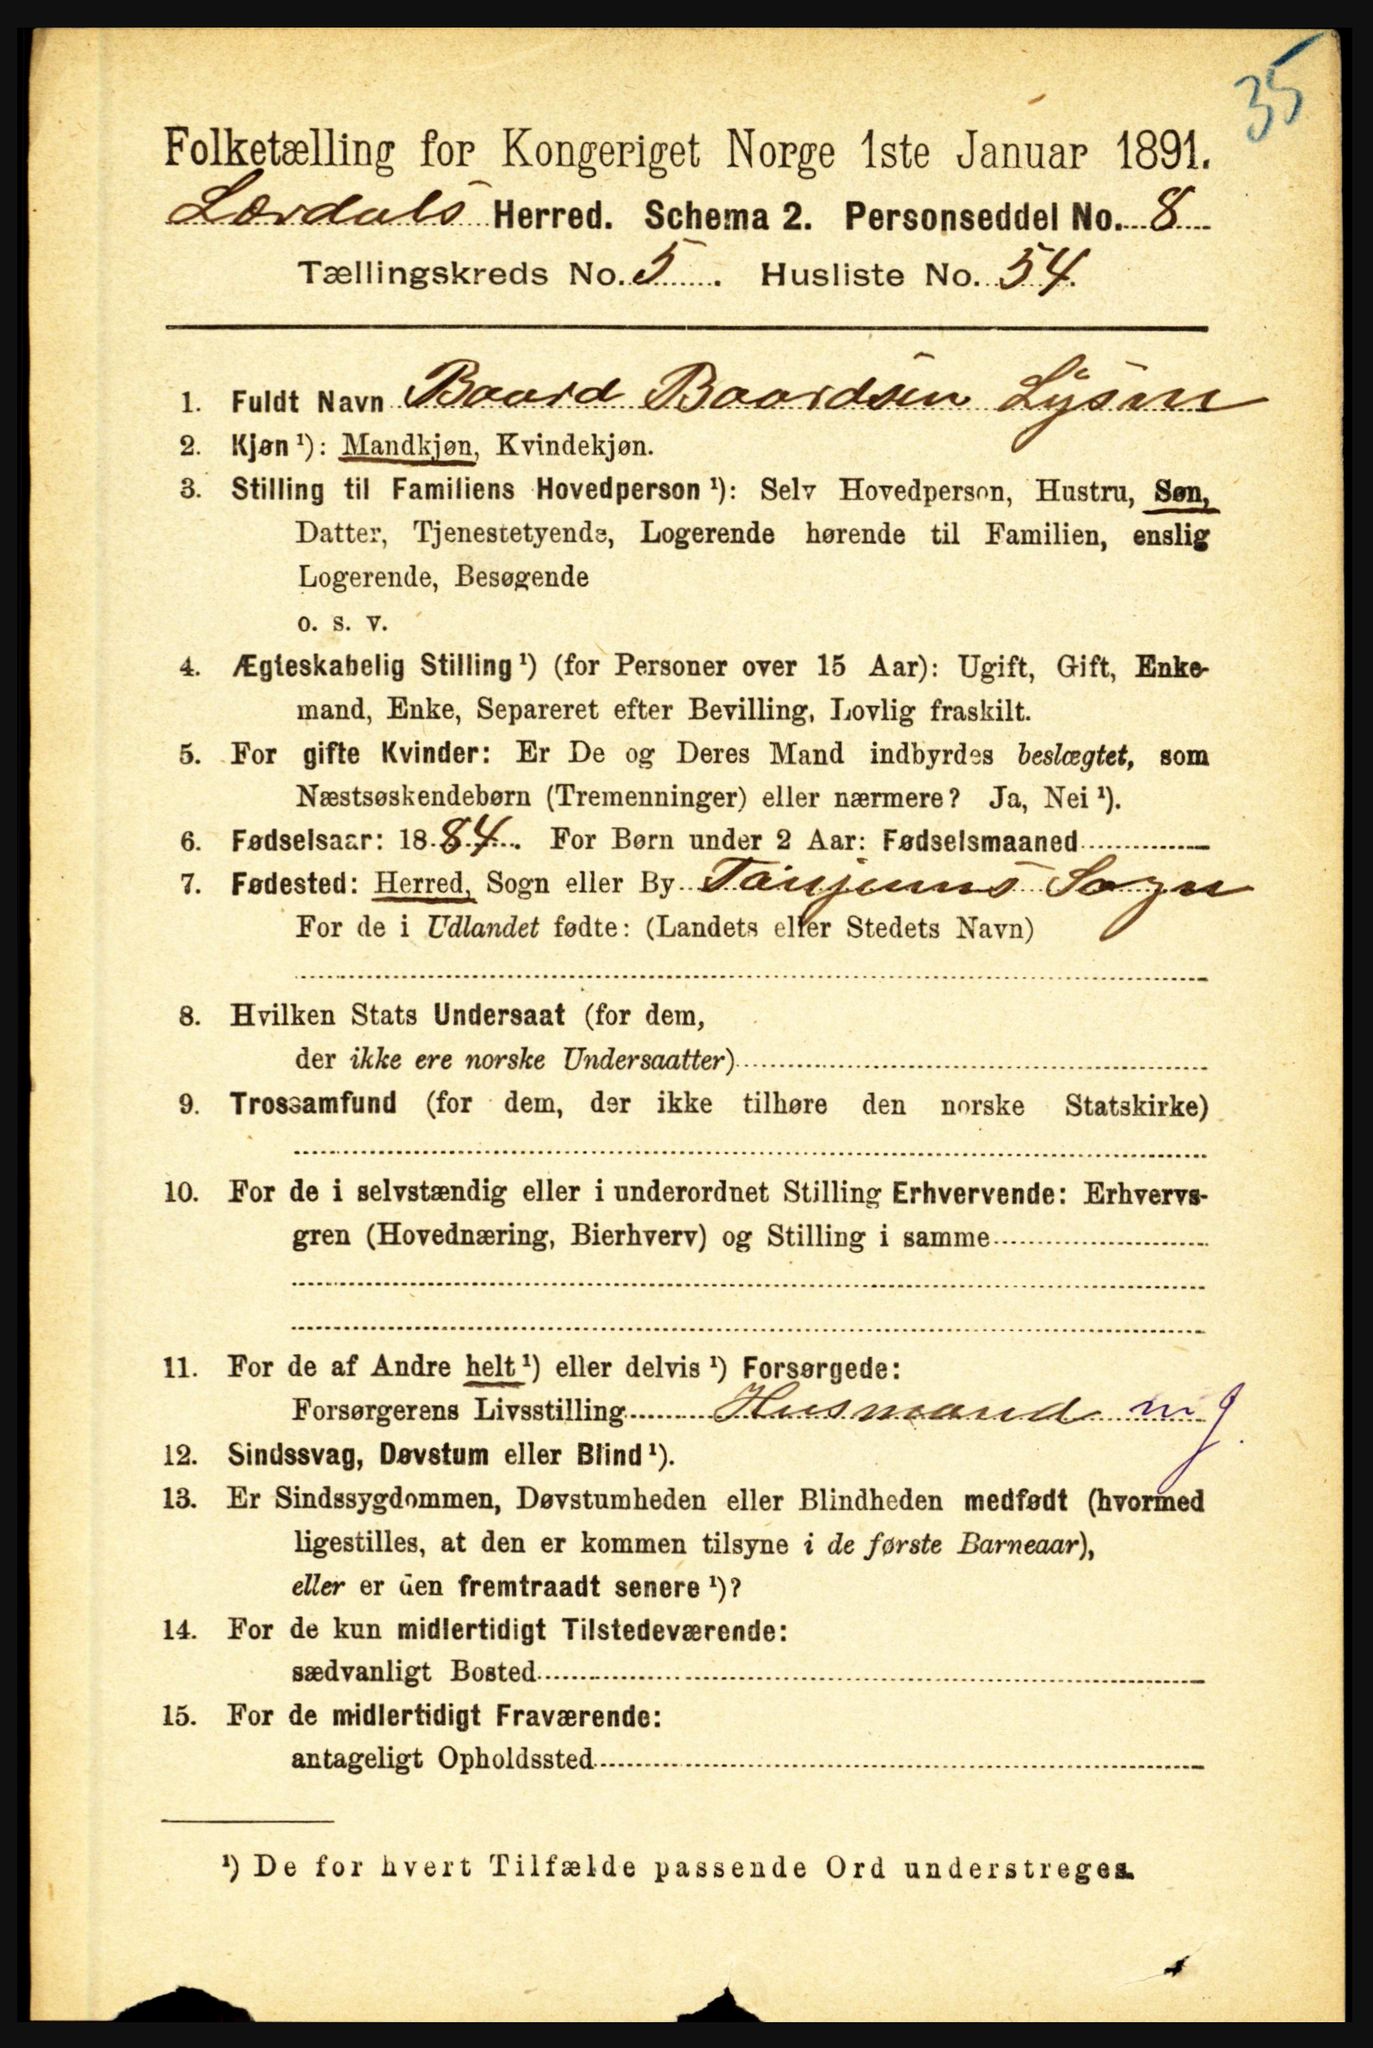 35
Folketælling for Kongeriget Norge 1ste Januar 1891.
Lærdals Herred. Schema 2. Personseddel No. 8
Tællingskreds No. 5. Husliste No. 54.
1. Fuldt Navn Baard Baardsen Lysne
2. Kjøn¹): Mandkjøn, Kvindekjøn.
3. Stilling til Familiens Hovedperson¹): Selv Hovedperson, Hustru, Søn,
Datter, Tjenestetyende, Logerende hørende til Familien, enslig
Logerende, Besøgende
o. s. v.
4. Ægteskabelig Stilling¹) (for Personer over 15 Aar): Ugift, Gift, Enke-
mand, Enke, Separeret efter Bevilling, Lovlig fraskilt.
5. For gifte Kvinder: Er De og Deres Mand indbyrdes beslægtet, som
Næstsøskendebørn (Tremenninger) eller nærmere? Ja, Nei¹).
6. Fødselsaar: 1884. For Børn under 2 Aar: Fødselsmaaned
7. Fødested: Herred, Sogn eller By Tønjums Sogn
For de i Udlandet fødte: (Landets eller Stedets Navn)
8. Hvilken Stats Undersaat (for dem,
der ikke ere norske Undersaatter)
9. Trossamfund (for dem, der ikke tilhøre den norske Statskirke)
10. For de i selvstændig eller i underordnet Stilling Erhvervende: Erhvervs-
gren (Hovednæring, Bierhverv) og Stilling i samme
11. For de af Andre helt¹) eller delvis¹) Forsørgede:
Forsørgerens Livsstilling Husmand m j
12. Sindssvag, Døvstum eller Blind¹).
13. Er Sindssygdommen, Døvstumheden eller Blindheden medfødt (hvormed
ligestilles, at den er kommen tilsyne i de første Barneaar),
eller er den fremtraadt senere¹)?
14. For de kun midlertidigt Tilstedeværende:
sædvanligt Bosted
15. For de midlertidigt Fraværende:
antageligt Opholdssted
¹) De for hvert Tilfælde passende Ord understreges.